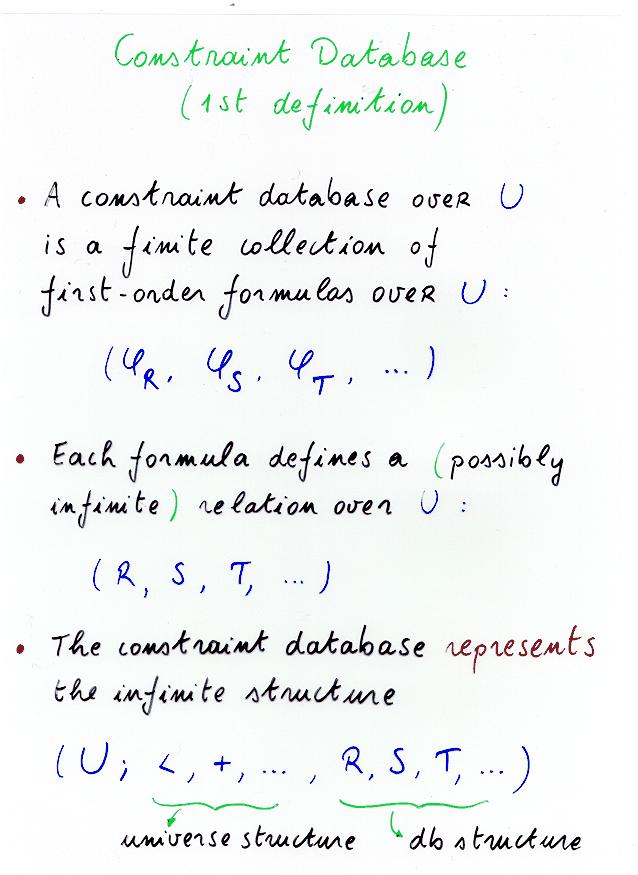 Constraint Database
(1st definition)
• A constraint database over U
is a finite collection of
first-order formulas over U :
(φR, φS, φT, ...)
• Each formula defines a (possibly
infinite) relation over U :
(R, S, T, ...)
• The constraint database represents
the infinite structure
(U; <, +, ... , R, S, T, ...)
universe structure db structure